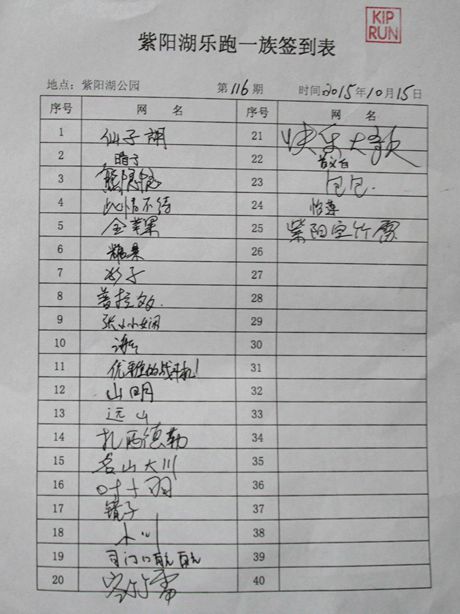 KIP
RUN
紫阳湖乐跑一族签到表
地点：紫阳湖公园 第116期 时间2015年10月15日
序号 网 名 序号 网 名
1 仙子湖 21 快乐大歌
2 晴子 22
3 23 包包.
4 此情不待 24 怡莲
5 金苹果 25 紫阳空竹雷
6 糖果 26
7 彩子 27
8 普拉多 28
9 张小小娴 29
10 30
11 优雅的战斗机! 31
12 山明 32
13 远山 33
14 扎西德勒 34
15 名山大川 35
16 叶十羽 36
17 镜子 37
18 小川 38
19 司门口航航 39
20 40